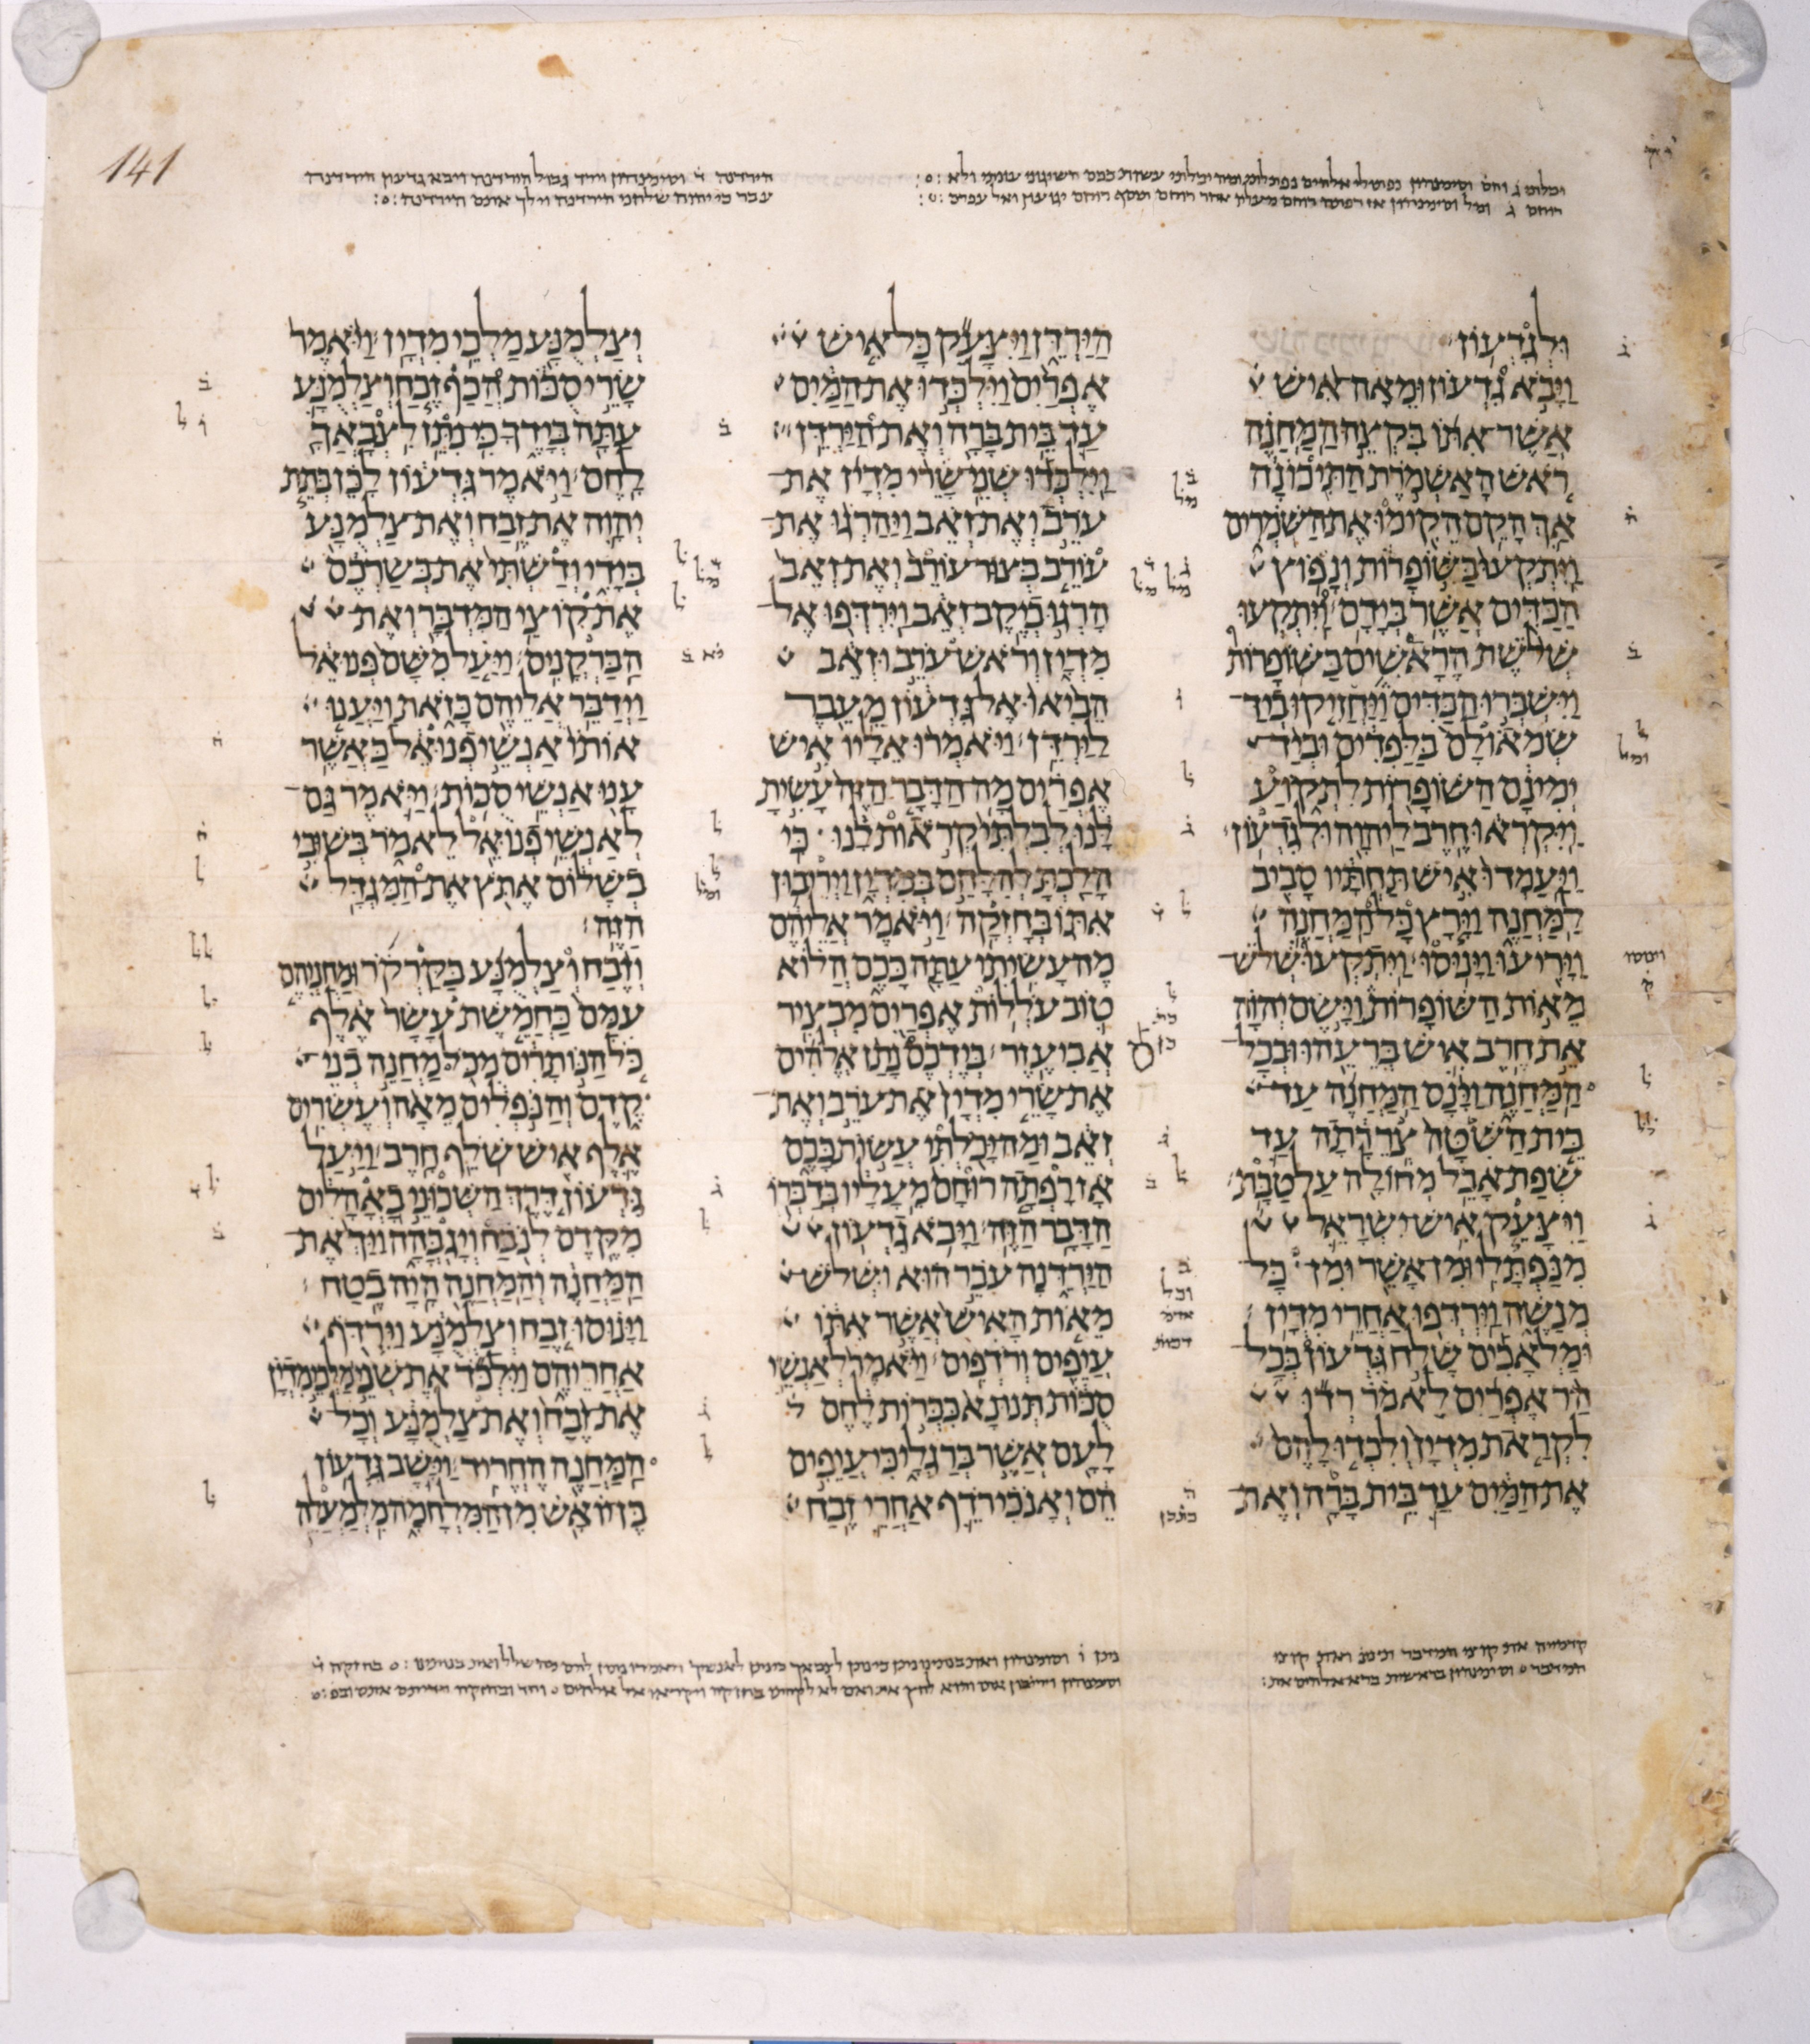 141
ולגדעון
ויבא גדעון ומאה איש
אשר אתו בקצה המחנה
ראש האשמרת התיכונה
אך הקם הקימו את השמרים
ויתקעו בשופרות ונפוץ
הכדים אשר בידם ויתקעו
שלשת הראשים בשופרות
וישברו הכדים ויחזיקו ביד
שמאולם בלפדים וביד
ימינם השופרות לתקוע
ויקראו חרב ליהוה ולגדעון
ויעמדו איש תחתיו סביב
למחנה וירץ כל המחנה
ויריעו ויניסו ויתקעו שלש
מאות השופרות וישם יהוה
את חרב איש ברעהו ובכל
המחנה וינס המחנה עד
בית השטה צררתה עד
שפת אבל מחולה על טבת
ויצעק איש ישראל
מנפתלי ומן אשר ומן כל
מנשה וירדפו אחרי מדין
ומלאכים שלח גדעון בכל
הר אפרים לאמר רדו
לקראת מדין ולכדו להם
את המים עד בית ברה ואת
הירדן ויצעק כל איש
אפרים וילכדו את המים
עד בית ברה ואת הירדן
וילכדו שני שרי מדין את
ערב ואת זאב ויהרגו את
עורב בצור עורב ואת זאב
הרגו ביקב זאב וירדפו אל
מדין וראש ערב וזאב
הביאו אל גדעון מעבר
לירדן ויאמרו אליו איש
אפרים מה הדבר הזה עשית
לנו לבלתי קראות לנו כי
הלכת להלחם במדין ויריבון
אתו בחזקה ויאמר אליהם
מה עשיתי עתה ככם הלוא
טוב עללות אפרים מבציר
אביעזר בידכם נתן אלהים
את שרי מדין את ערב ואת
זאב ומה יכלתי עשות ככם
אז רפתה רוחם מעליו בדברו
הדבר הזה ויבא גדעון
הירדנה עבר הוא ושלש
מאות האיש אשר אתו
עיפים ורדפים ויאמר לאנשי
סכות תנו נא ככרות לחם
לעם אשר ברגלי כי עיפים
הם ואנכי רדף אחרי זבח
וצלמנע מלכי מדין ויאמר
שרי סכות הכף זבח וצלמנע
עתה בידך כי נתן לצבאך
לחם ויאמר גדעון לכן בתת
יהוה את זבח ואת צלמנע
בידי ודשתי את בשרכם
את קוצי המדבר ואת
הברקנים ויעל משם פנואל
וידבר אליהם כזאת ויענו
אותו אנשי פנואל כאשר
ענו אנשי סכות ויאמר גם
לאנשי פנואל לאמר בשובי
בשלום אתץ את המגדל
הזה
וזבח וצלמנע בקרקר ומחניהם
עמם כחמשת עשר אלף
כל הנותרים מכל מחנה בני
קדם והנפלים מאה ועשרים
אלף איש שלף חרב ויעל
גדעון דרך השכוני באהלים
מקדם לנבח ויגבהה ויך את
המחנה והמחנה היה בטח
וינוסו זבח וצלמנע וירדף
אחריהם וילכד את שני מלכי מדין
את זבח ואת צלמנע וכל
המחנה החריד וישב גדעון
בן יואש מן המלחמה מלמעלה